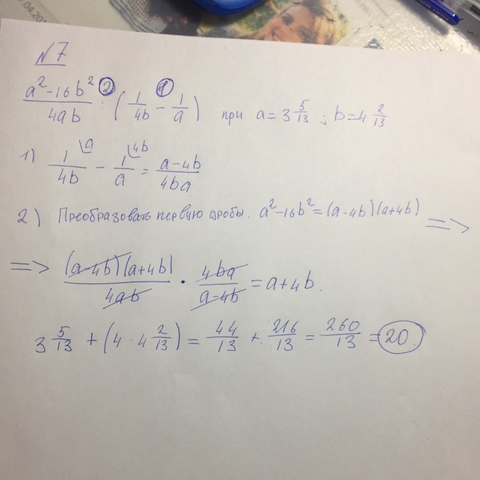 N7
(a²-16b²)/(4ab) : (1/(4b) - 1/a) при a=3 5/13 ; b=4 2/13
1) 1/(4b) - 1/a = (a-4b)/(4ba)
2) Преобразовать первую дробь. a²-16b²=(a-4b)(a+4b) =>
=> (a-4b)(a+4b)/(4ab) · (4ba)/(a-4b) = a+4b.
3 5/13 + (4·4 2/13) = 44/13 + 216/13 = 260/13 = 20